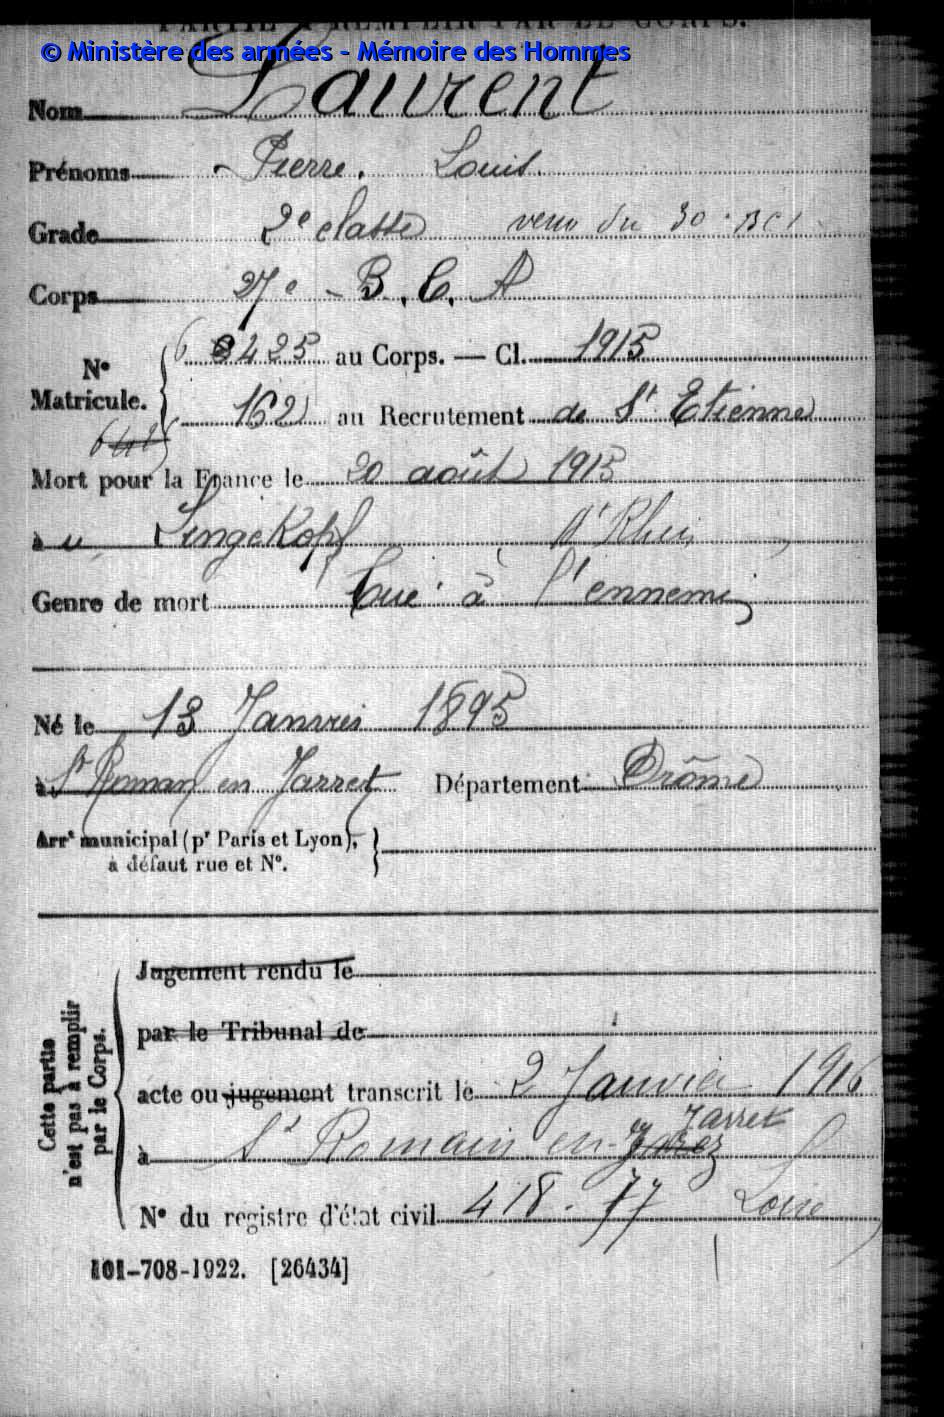 PARTIE À REMPLIR PAR LE CORPS.
© Ministère des armées - Mémoire des Hommes
Nom Laurent
Prénoms Pierre. Louis.
Grade 2e classe venu du 30e BCA
Corps 27e - B. C. A
6 3425 au Corps. — Cl. 1915
N°
Matricule.
162 au Recrutement de St Etienne
Mort pour la France le 20 août 1915
à u Lingekopf Ht Rhin
Genre de mort Tué à l'ennemi
Né le 13 Janvier 1895
à St Roman en Jarret Département Drôme
Arrt municipal (pr Paris et Lyon),
à défaut rue et N°.
Cette partie
n'est pas à remplir
par le Corps.
Jugement rendu le
par le Tribunal de
acte ou jugement transcrit le 2 Janvier 1916
Jarret
à St Romain en Jarez
N° du registre d'état civil 418. 77 Loire
101-708-1922. [26434]